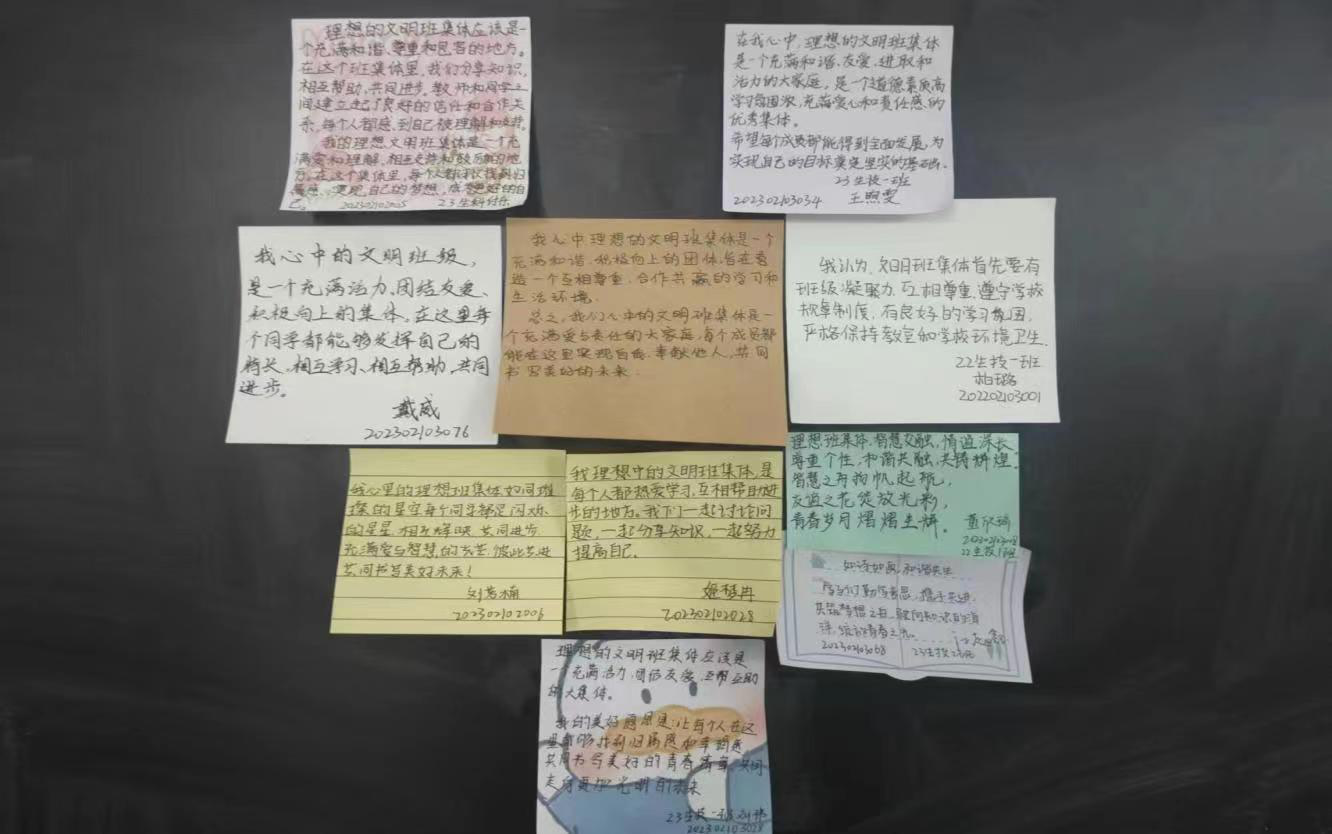 理想的文明班集体应该是
一个充满和谐、尊重和包容的地方。
在这个班集体里，我们分享知识，
相互帮助，共同进步，教师和同学之
间建立起了良好的信任和合作关
系，每个人都感到自己被理解和支持。
我的理想文明班集体是一个充
满爱和理解、相互支持和鼓励的地
方。在这个集体里，每个人都可以找到归
属感，实现自己的梦想，成为更好的自
己。 202302102005 23生科
在我心中，理想的文明班集体
是一个充满和谐、友爱、进取和
活力的大家庭。是一个道德素质高
学习氛围浓，充满爱心和责任感的
优秀集体。
希望每个成员都能得到全面发展，为
实现自己的目标奠定坚实的基础。
23生技一班
202302103034 王煦雯
我心中的文明班级，
是一个充满活力、团结友爱、
积极向上的集体。在这里每
个同学都能够发挥自己的
特长，相互学习、相互帮助，共同
进步。
戴威
202302103076
我心中理想的文明班集体是一个
充满和谐、积极向上的团体，旨在营
造一个互相尊重、合作共赢的学习和
生活环境.
总之，我们心中的文明班集体是一
个充满爱与责任的大家庭，每个成员都
能在这里实现自我、奉献他人，共同
书写美好的未来.
我认为，文明班集体首先要有
班级凝聚力，互相尊重，遵守学校
规章制度，有良好的学习氛围，
严格保持教室和学校环境卫生.
22生技一班
柏璐
202202103001
我心里的理想班集体如同璀
璨的星空每个同学都是闪烁
的星星，相互辉映，共同进步
充满爱与智慧的光芒，彼此共进
共同书写美好未来！
202302102006
我理想中的文明班集体，是
每个人都热爱学习，互相帮助进
步的地方。我们一起讨论问
题，一起分享知识，一起努力
提高自己.
姬梦冉
202302102028
理想班集体，智慧交融，情谊深长
尊重个性，和谐共融，共铸辉煌.
智慧之舟扬帆起航，
友谊之花绽放光彩，
青春岁月熠熠生辉。 董欣
22生技1班
如诗如画，和谐共生
同学们勤学善思，携手共进.
共筑梦想之舟，驶向知识的海
洋，绽放青春之光。
202302103068 23生技2班
理想的文明班集体应该是
一个充满活力，团结友爱，互帮互助
的大集体。
我的美好愿景是：让每个人在这
里都能够找到归属感和幸福感
共同书写美好的青春篇章，共同
走向更加光明的未来
23生技一班 刘
202302103028